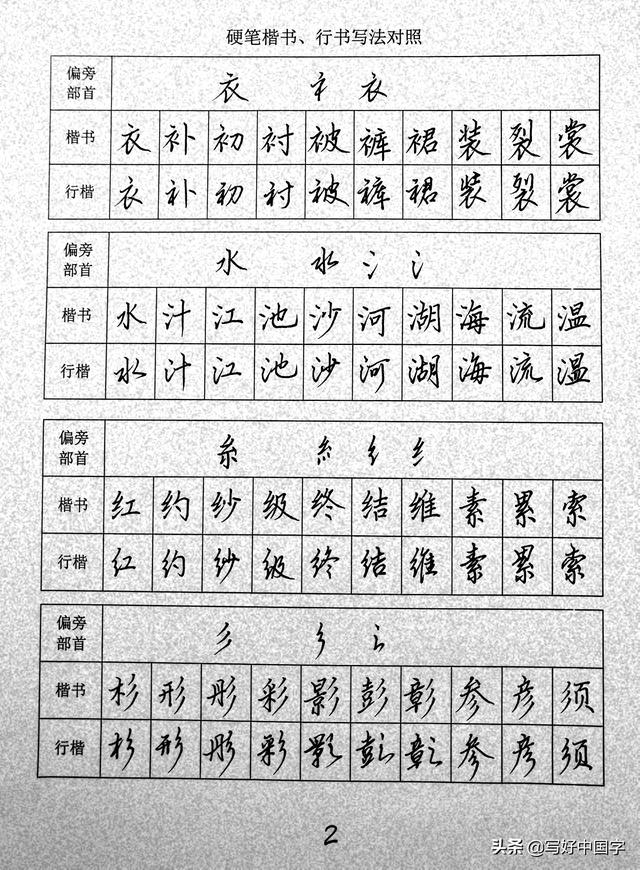 硬笔楷书、行书写法对照
偏旁部首 衣 衤 衣
楷书 衣 补 初 衬 被 裤 裙 装 裂 裳
行楷 衣 补 初 衬 被 裤 裙 装 裂 裳
偏旁部首 水 氺 氵 氵
楷书 水 汁 江 池 沙 河 湖 海 流 温
行楷 水 汁 江 池 沙 河 湖 海 流 温
偏旁部首 糸 糹 纟 纟
楷书 红 约 纱 级 终 结 维 素 累 索
行楷 红 约 纱 级 终 结 维 素 累 索
偏旁部首 彡 彡 彡
楷书 杉 形 彤 彩 影 彭 彰 参 彦 须
行楷 杉 形 彤 彩 影 彭 彰 参 彦 须
2
头条 @写好中国字